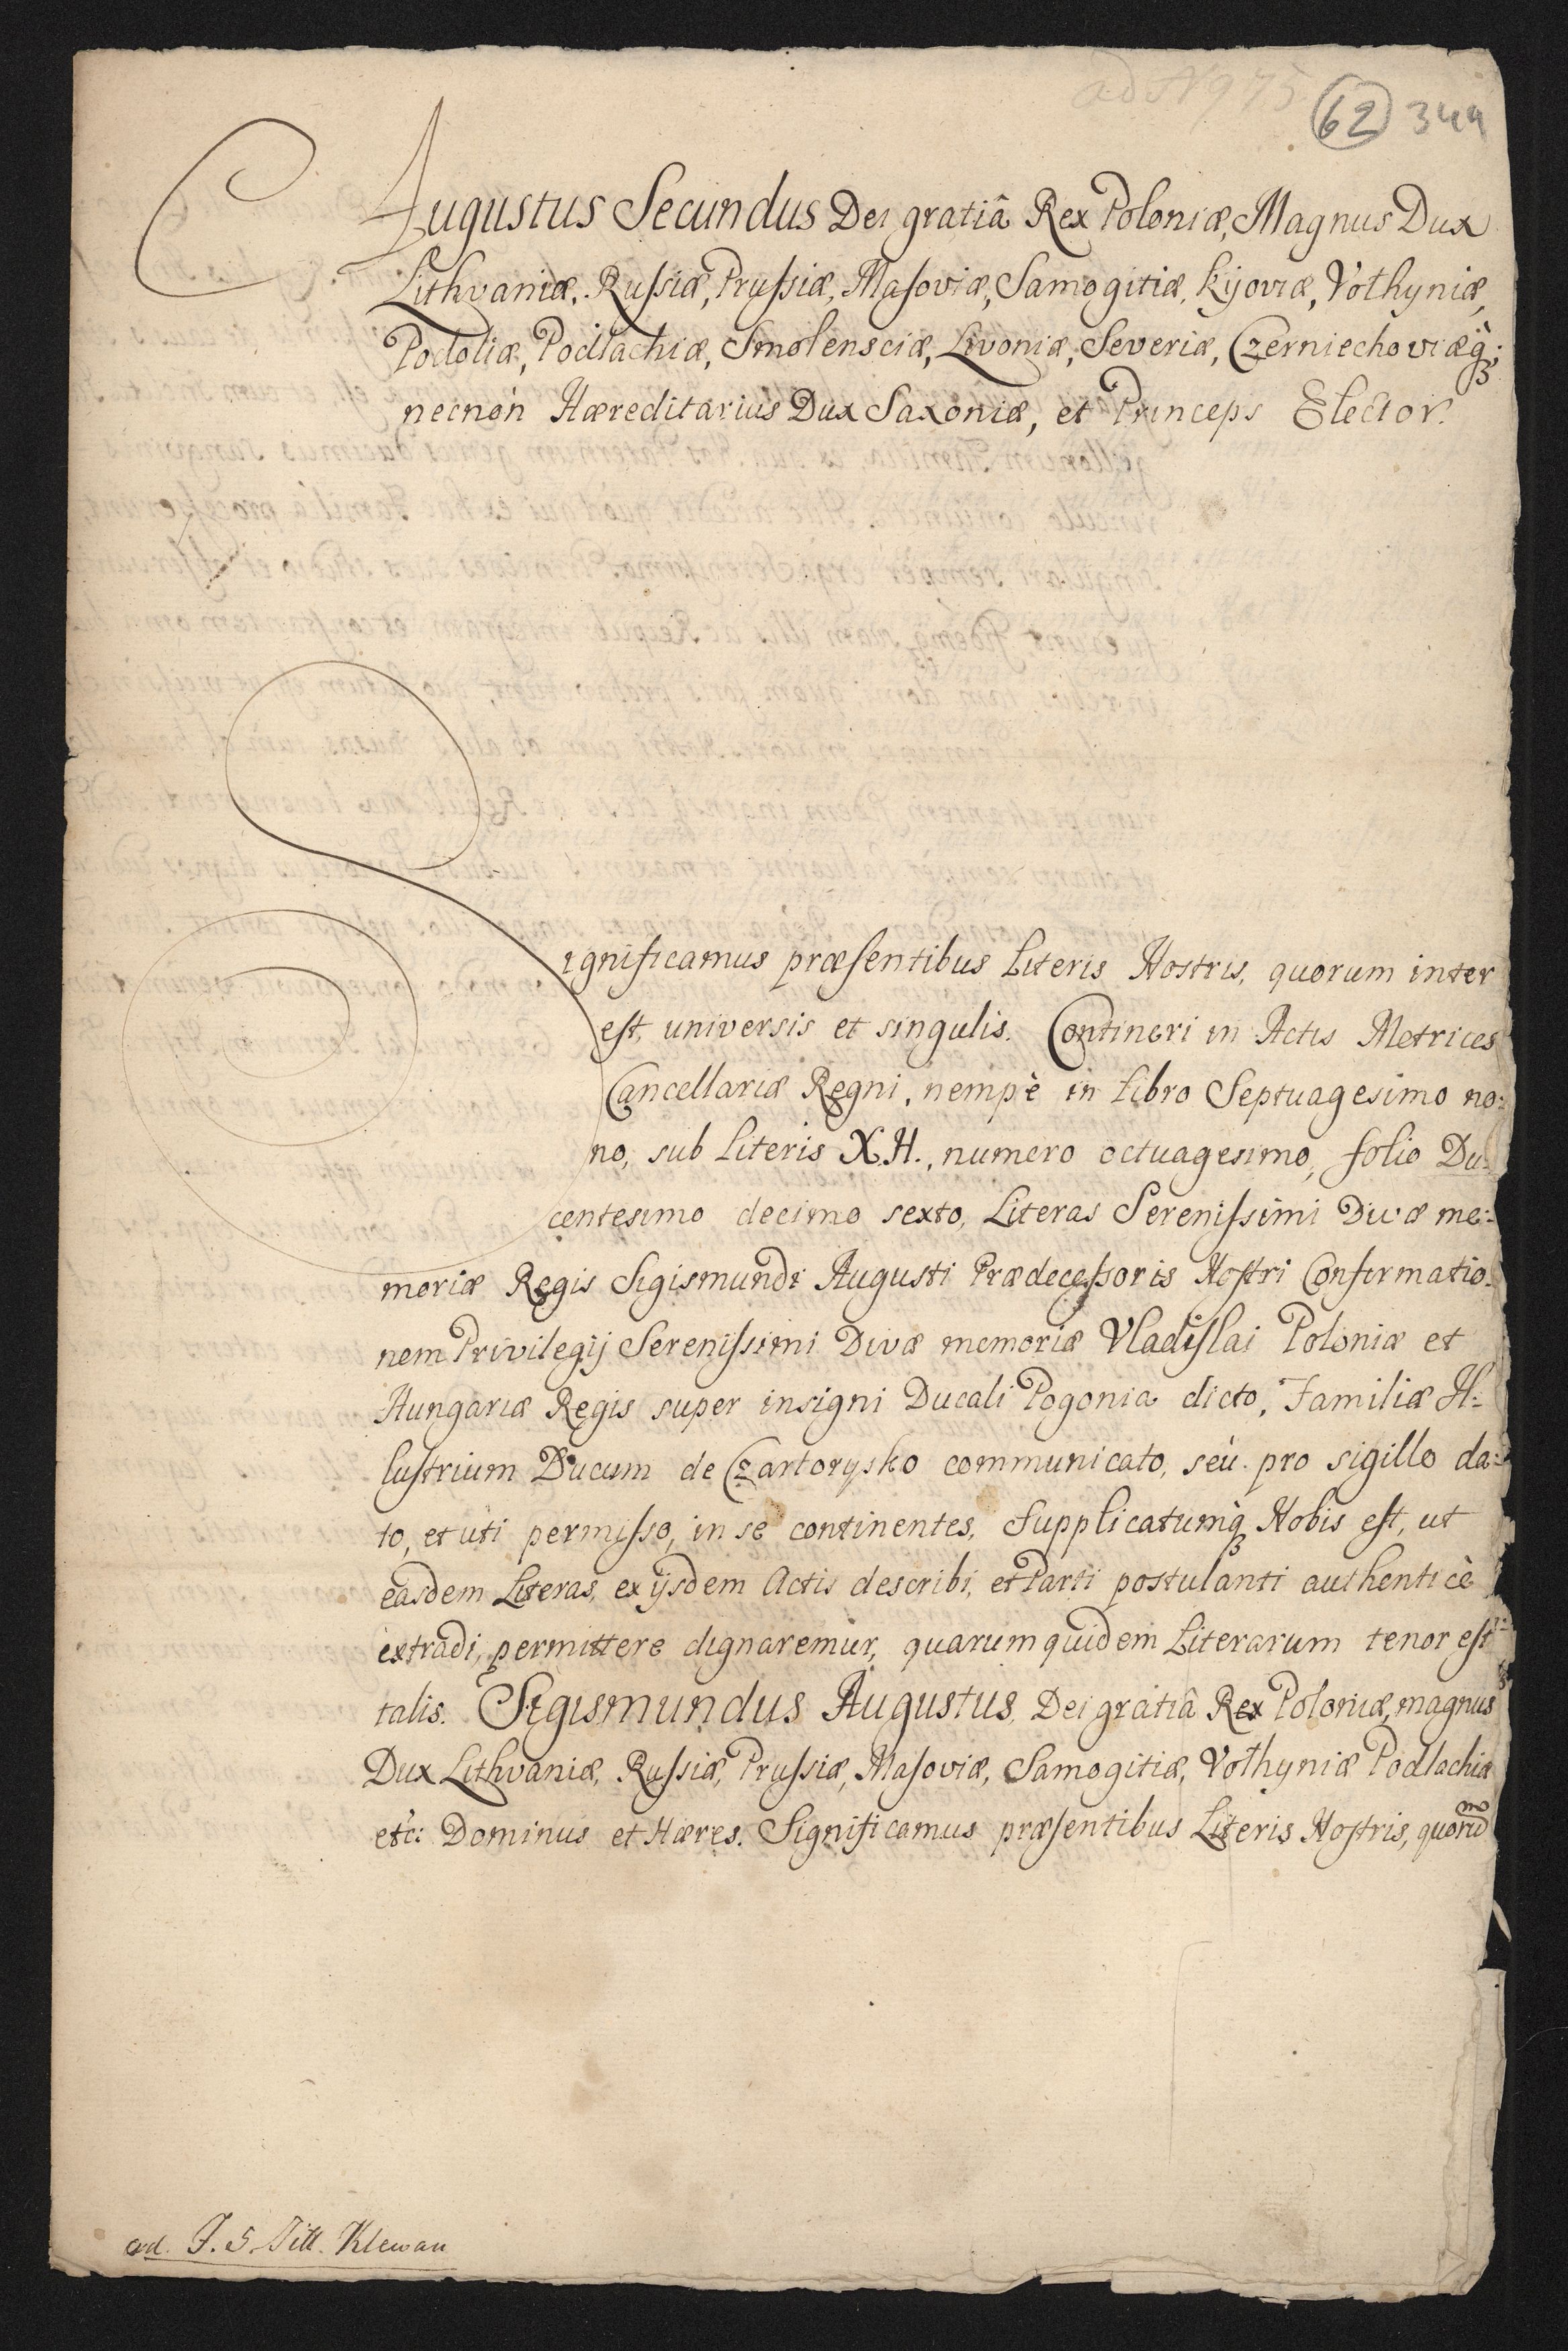 ad N 975
62 344
Augustus Secundus Dei gratiâ Rex Poloniæ, Magnus Dux
Lithvaniæ, Rußiæ, Prußiæ, Masoviæ, Samogitiæ, Kijoviæ, Volhyniæ,
Podoliæ, Podlachiæ, Smolensciæ, Livoniæ, Severiæ, Czerniechoviæq́;
necnòn Hæreditarius Dux Saxoniæ, et Princeps Elector.
Significamus præsentibus Literis Nostris, quorum inter
est, universis et singulis. Contineri in Actis Metrices
Cancellariæ Regni, nempè in Libro Septuagesimo no:
no, sub Literis X.H., numero octuagesimo, folio Du:
centesimo decimo sexto, Literas Serenißimi Divæ me:
moriæ Regis Sigismundi Augusti Prædeceßoris Nostri Confirmatio:
nem Privilegij Serenißimi Divæ memoriæ Vladislai Poloniæ et
Hungariæ Regis super insigni Ducali Pogonia dicto, Familiæ Il:
lustrium Ducum de Czartorysko communicato, seù pro sigillo da:
to, et uti permißo, in se continentes, Supplicatumq́ Nobis est, ut
easdem Literas, ex ijsdem Actis describi, et Parti postulanti authenticè
extradi, permittere dignaremur, quarum quidem Literarum tenor est
talis. Sigismundus Augustus, Dei gratiâ Rex Poloniæ, magnus
Dux Lithvaniæ, Rußiæ, Prußiæ, Masoviæ, Samogitiæ, Volhyniæ Podlachiæ
etc: Dominus et Hæres. Significamus præsentibus Literis Nostris, quorum
ad. F. 5 Titt. Klewan